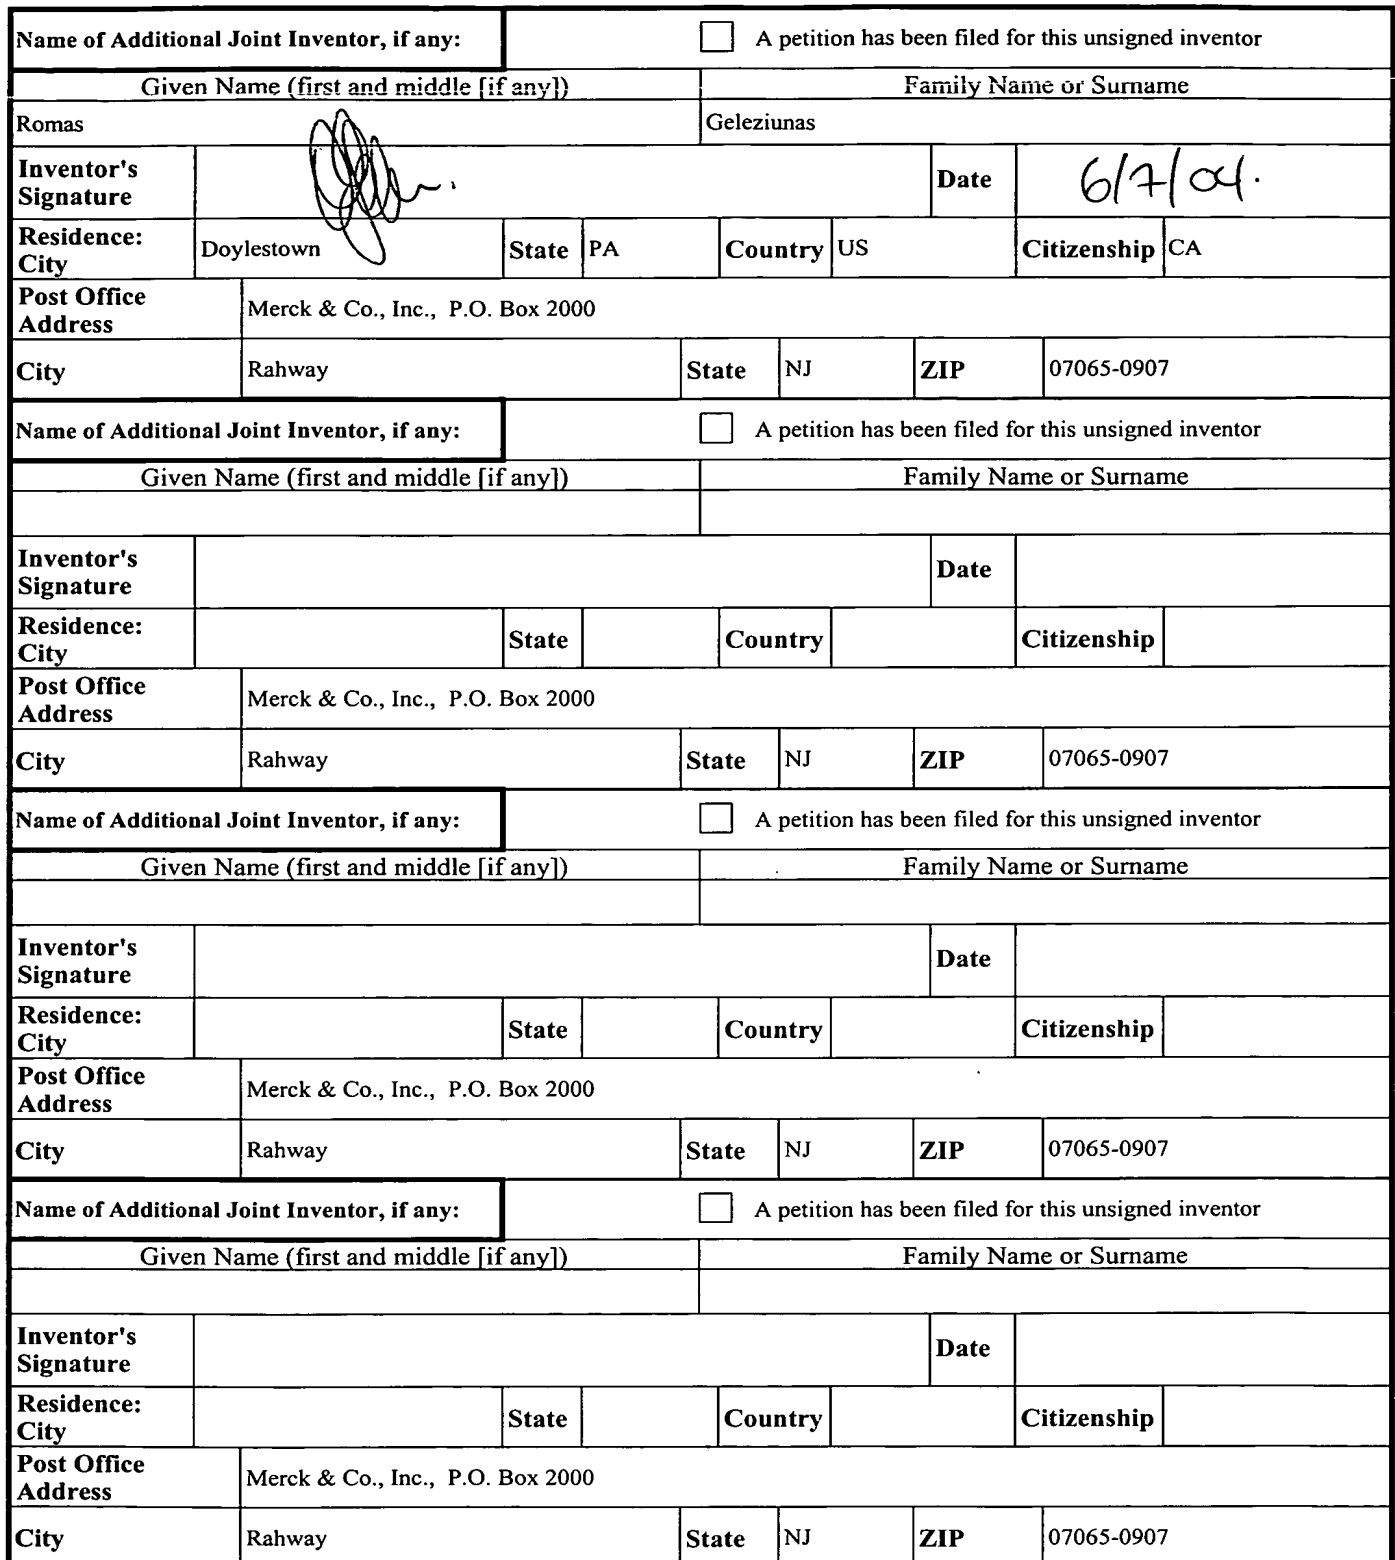 Name of Additional Joint Inventor, if any: A petition has been filed for this unsigned inventor
Given Name (first and middle [if any]) Family Name or Surname
Romas Geleziunas
Inventor's Signature Date 6/7/04.
Residence: City Doylestown State PA Country US Citizenship CA
Post Office Address Merck & Co., Inc., P.O. Box 2000
City Rahway State NJ ZIP 07065-0907
Name of Additional Joint Inventor, if any: A petition has been filed for this unsigned inventor
Given Name (first and middle [if any]) Family Name or Surname
Inventor's Signature Date
Residence: City State Country Citizenship
Post Office Address Merck & Co., Inc., P.O. Box 2000
City Rahway State NJ ZIP 07065-0907
Name of Additional Joint Inventor, if any: A petition has been filed for this unsigned inventor
Given Name (first and middle [if any]) Family Name or Surname
Inventor's Signature Date
Residence: City State Country Citizenship
Post Office Address Merck & Co., Inc., P.O. Box 2000
City Rahway State NJ ZIP 07065-0907
Name of Additional Joint Inventor, if any: A petition has been filed for this unsigned inventor
Given Name (first and middle [if any]) Family Name or Surname
Inventor's Signature Date
Residence: City State Country Citizenship
Post Office Address Merck & Co., Inc., P.O. Box 2000
City Rahway State NJ ZIP 07065-0907